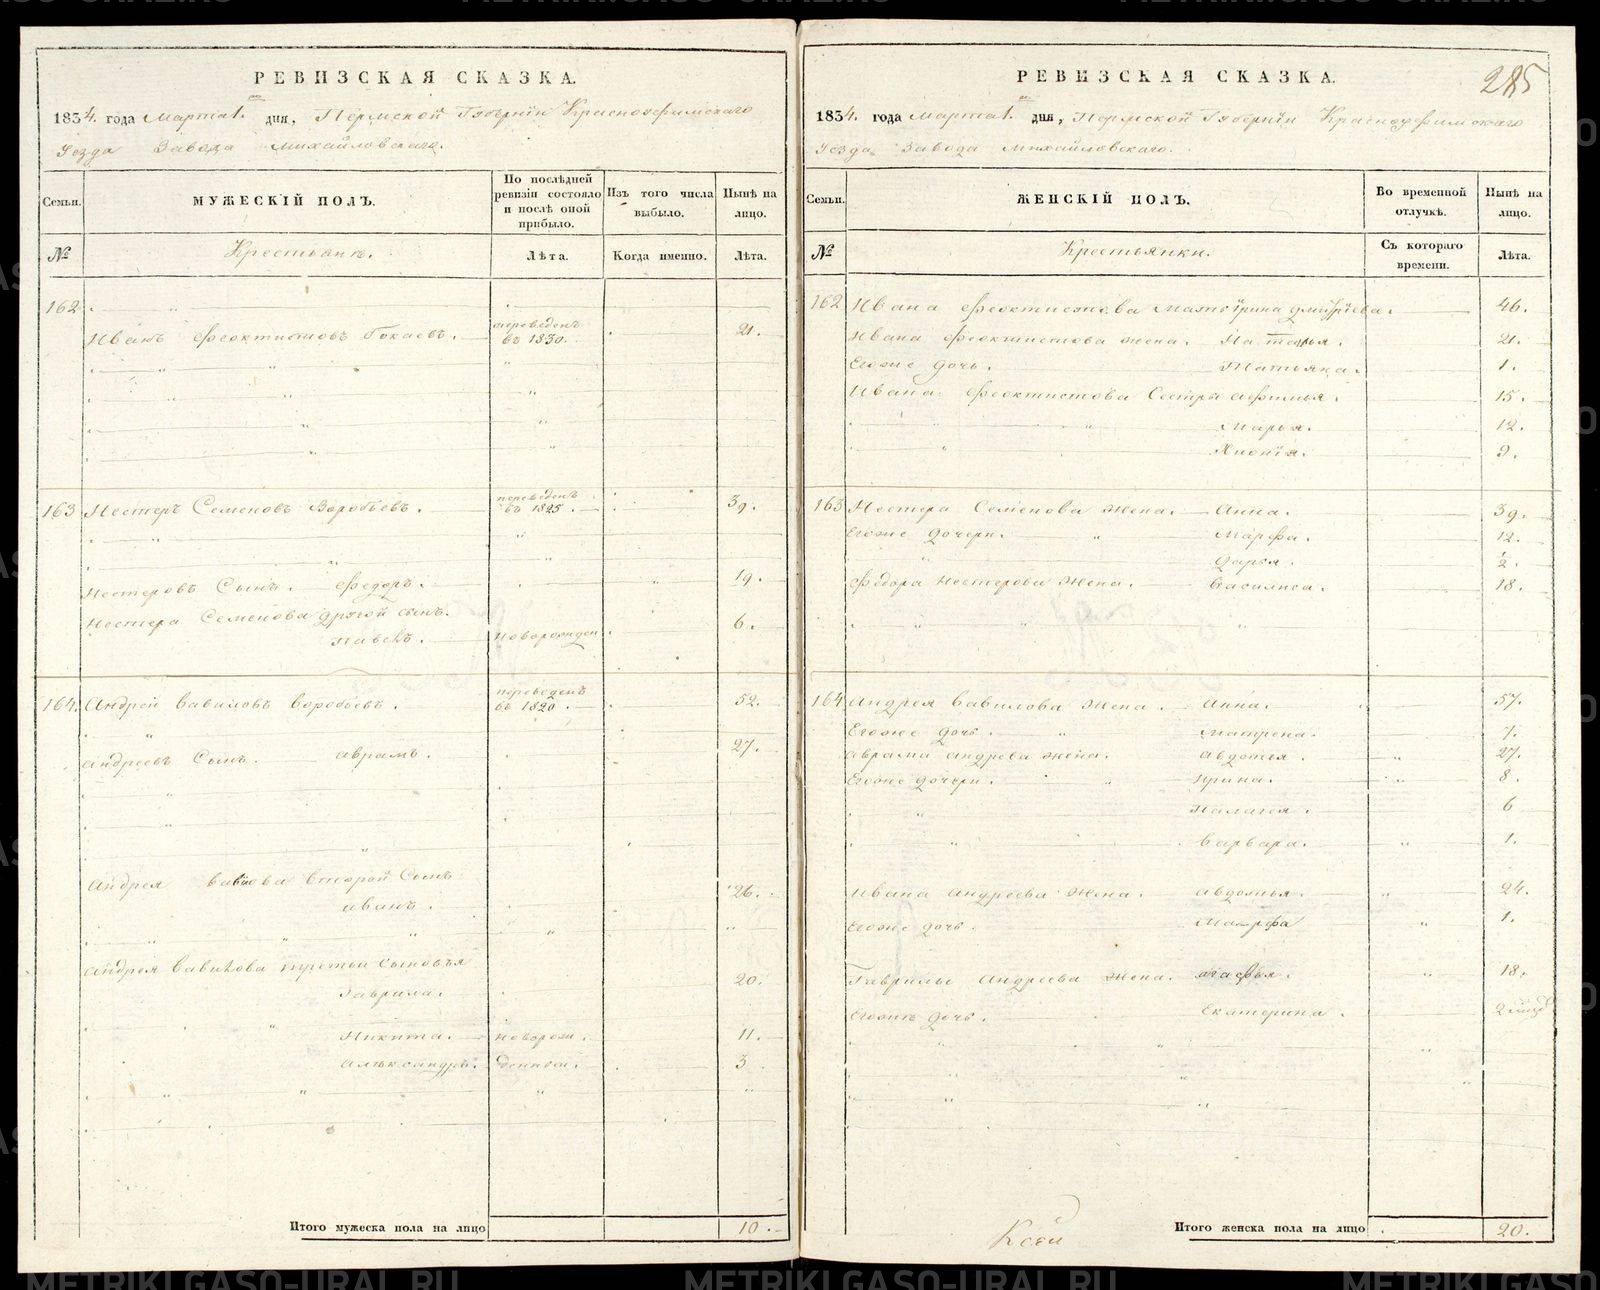 РЕВИЗСКАЯ СКАЗКА.
1834. года Марта 1. дня, Пермской Губернiи Красноуфимскаго
Уезда Завода Михайловскаго.
Семьи. МУЖЕСКIЙ ПОЛЪ. По послѣдней ревизiи состояло и послѣ оной прибыло. Изъ того числа выбыло. Нынѣ на лицо.
№ Крестьяне. Лѣта. Когда именно. Лѣта.
162
Иванъ Феоктистовъ переведенъ въ 1830. 21.
163 Нестеръ Семеновъ Воробьевъ. переведенъ въ 1825. 39.
Нестеровъ Сынъ. Федоръ. 19.
Нестера Семенова другой сынъ.
Павелъ. новорожден. 6.
164. Андрей Вавиловъ Воробьевъ. переведенъ въ 1820. 52.
Андреевъ Сынъ. Аврамъ. 27.
Андрея Вавилова второй Сынъ
Иванъ. 26.
Андрея Вавилова третьи Сыновья
Гаврила. 20.
Никита. новорож. 11.
Александръ. денныи. 3
Итого мужеска пола на лицо 10.
РЕВИЗСКАЯ СКАЗКА. 285
1834. года Марта 1. дня, Пермской Губернiи Красноуфимскаго
Уезда Завода Михайловскаго.
Семьи. ЖЕНСКIЙ ПОЛЪ. Во временной отлучкѣ. Нынѣ на лицо.
№ Крестьянки. Съ котораго времени. Лѣта.
162 Ивана Феоктистова Мать Ирина Дмитрiева. 46.
Ивана Феоктистова жена. Наталья. 21.
Егоже дочь. Татьяна. 1.
Ивана Феоктистова Сестры Афимья. 15.
Марья. 12.
Хионiя. 9.
163 Нестера Семенова жена. Анна. 39.
Егоже дочери. Марфа. 12.
Дарья. 2.
Федора Нестерова жена. Василиса. 18.
164 Андрея Вавилова жена. Анна. 57.
Егоже дочь. Матрена. 7.
Аврама Андреева жена. Авдотья. 27.
Егоже дочери. Ирина. 8.
Палагея. 6
Варвара. 1.
Ивана Андреева жена. Авдотья. 24.
Егоже дочь. Марфа 1.
Гаврилы Андреева жена. Агафья. 18.
Егоже дочь. Екатерина. 2
Итого женска пола на лицо 20.
METRIKI.GASO-URAL.RU
METRIKI.GASO-URAL.RU